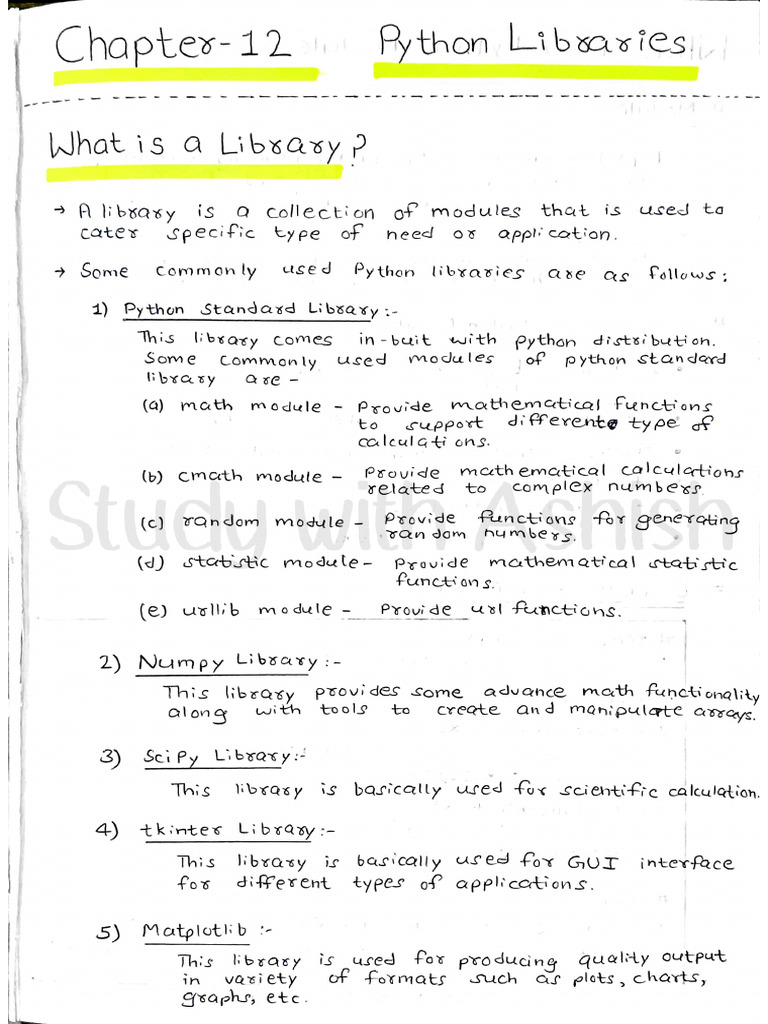 Chapter-12 Python Libraries
What is a Library?
→ A library is a collection of modules that is used to
cater specific type of need or application.
→ Some commonly used Python libraries are as follows:
1) Python Standard Library:-
This library comes in-buit with python distribution.
Some commonly used modules of python standard
library are -
(a) math module - Provide mathematical functions
to support different type of
calculations.
(b) cmath module - Provide mathematical calculations
related to complex numbers.
(c) random module - Provide functions for generating
random numbers.
Study with Ashish
(d) statistic module - Provide mathematical statistic
functions.
(e) urllib module - Provide url functions.
2) Numpy Library:-
This library provides some advance math functionality
along with tools to create and manipulate arrays.
3) SciPy Library:-
This library is basically used for scientific calculation.
4) tkinter Library:-
This library is basically used for GUI interface
for different types of applications.
5) Matplotlib :-
This library is used for producing quality output
in variety of formats such as plots, charts,
graphs, etc.